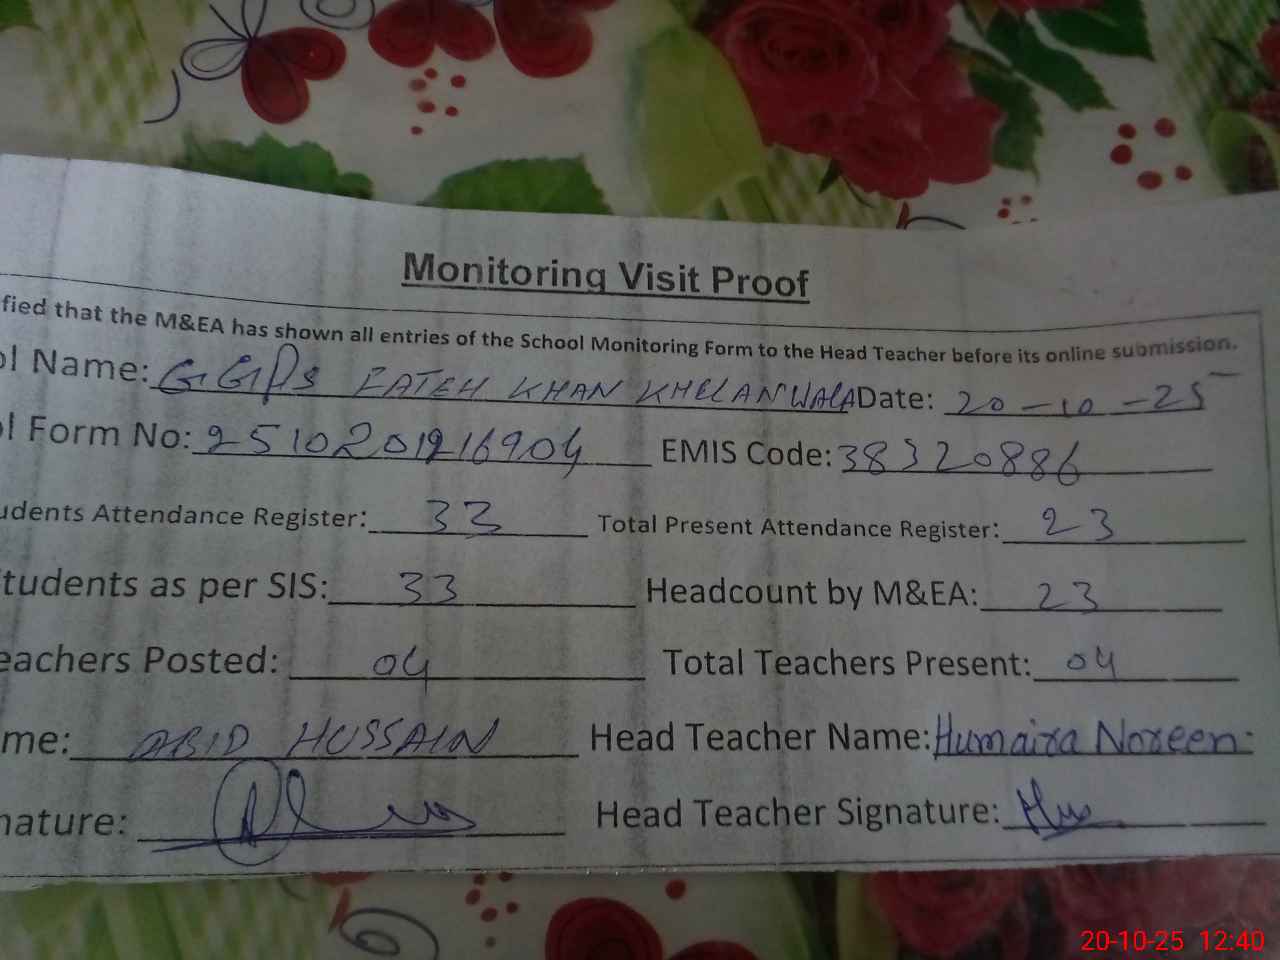 Monitoring Visit Proof
fied that the M&EA has shown all entries of the School Monitoring Form to the Head Teacher before its online submission.
ol Name: GGPS FATEH KHAN KHELANWALA Date: 20-10-25
ol Form No: 2510201216904 EMIS Code: 38320886
udents Attendance Register: 33 Total Present Attendance Register: 23
tudents as per SIS: 33 Headcount by M&EA: 23
eachers Posted: 04 Total Teachers Present: 04
me: ABID HUSSAIN Head Teacher Name: Humaira Noreen
nature: Head Teacher Signature:
20-10-25 12:40